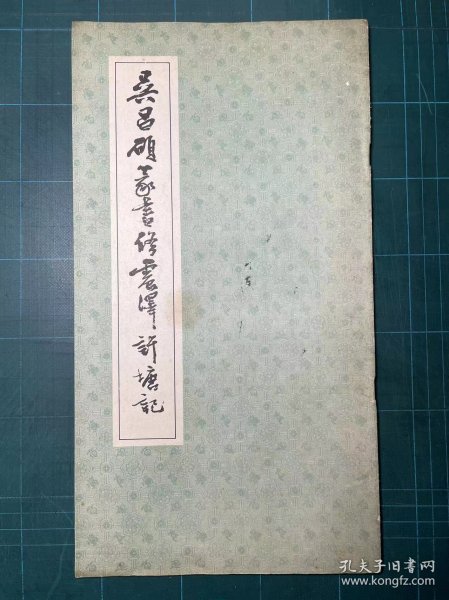 吴昌硕篆书修震泽许塘记
孔夫子旧书网
www.kongfz.com